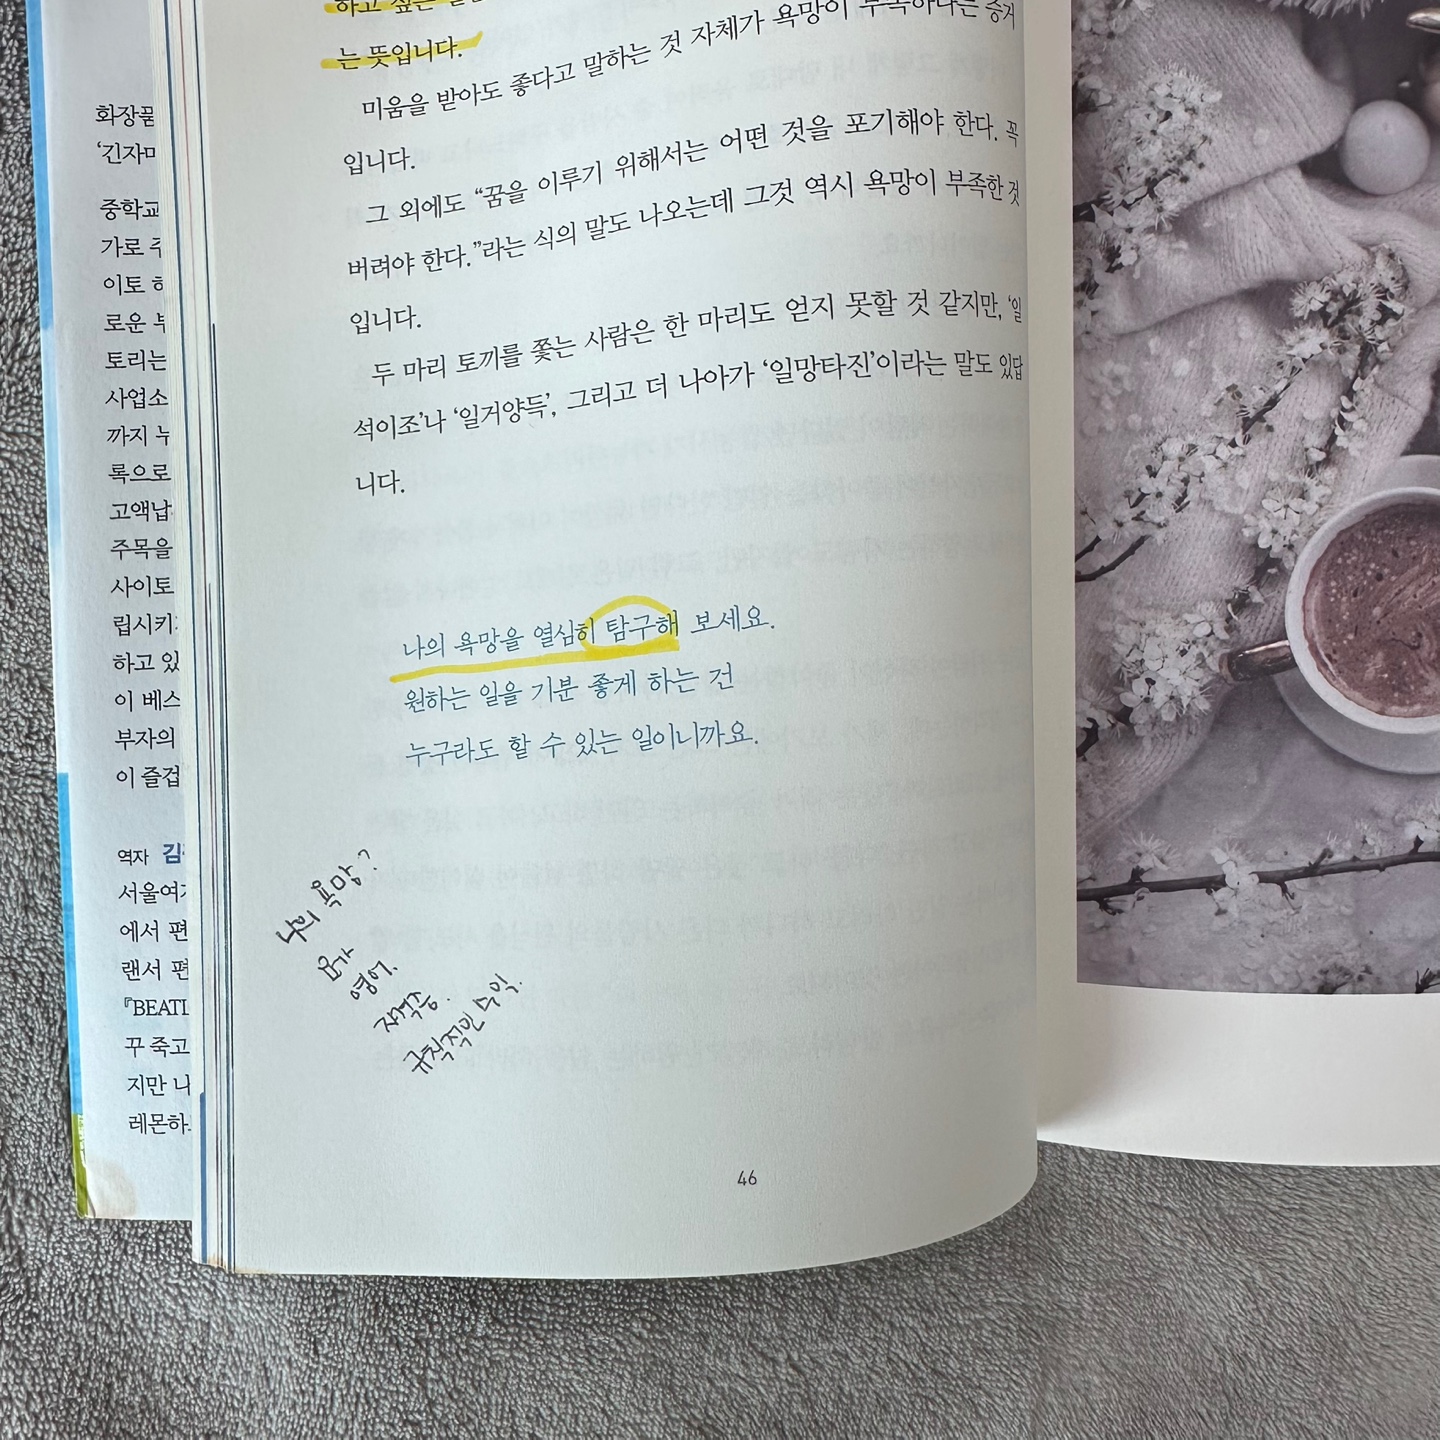 화장품
'긴자마
중학교
가로 주
이토 히
로운 부
토리는
사업소
까지 누
록으로
고액납
주목을
사이토
립시키
하고 있
이 베스
부자의
이 즐겁
역자 김
서울여
에서 편
랜서 편
『BEATL
꾸 죽고
지만 나
레몬하
하고 싶은
는 뜻입니다.
미움을 받아도 좋다고 말하는 것 자체가 욕망이 부족하다는 증거
입니다.
그 외에도 “꿈을 이루기 위해서는 어떤 것을 포기해야 한다. 꼭
버려야 한다.”라는 식의 말도 나오는데 그것 역시 욕망이 부족한 것
입니다.
두 마리 토끼를 쫓는 사람은 한 마리도 얻지 못할 것 같지만, ‘일
석이조’나 ‘일거양득’, 그리고 더 나아가 ‘일망타진’이라는 말도 있답
니다.
나의 욕망을 열심히 탐구해 보세요.
원하는 일을 기분 좋게 하는 건
누구라도 할 수 있는 일이니까요.
나의 욕망?
요가
영어.
재석승.
규칙적인 수익.
46